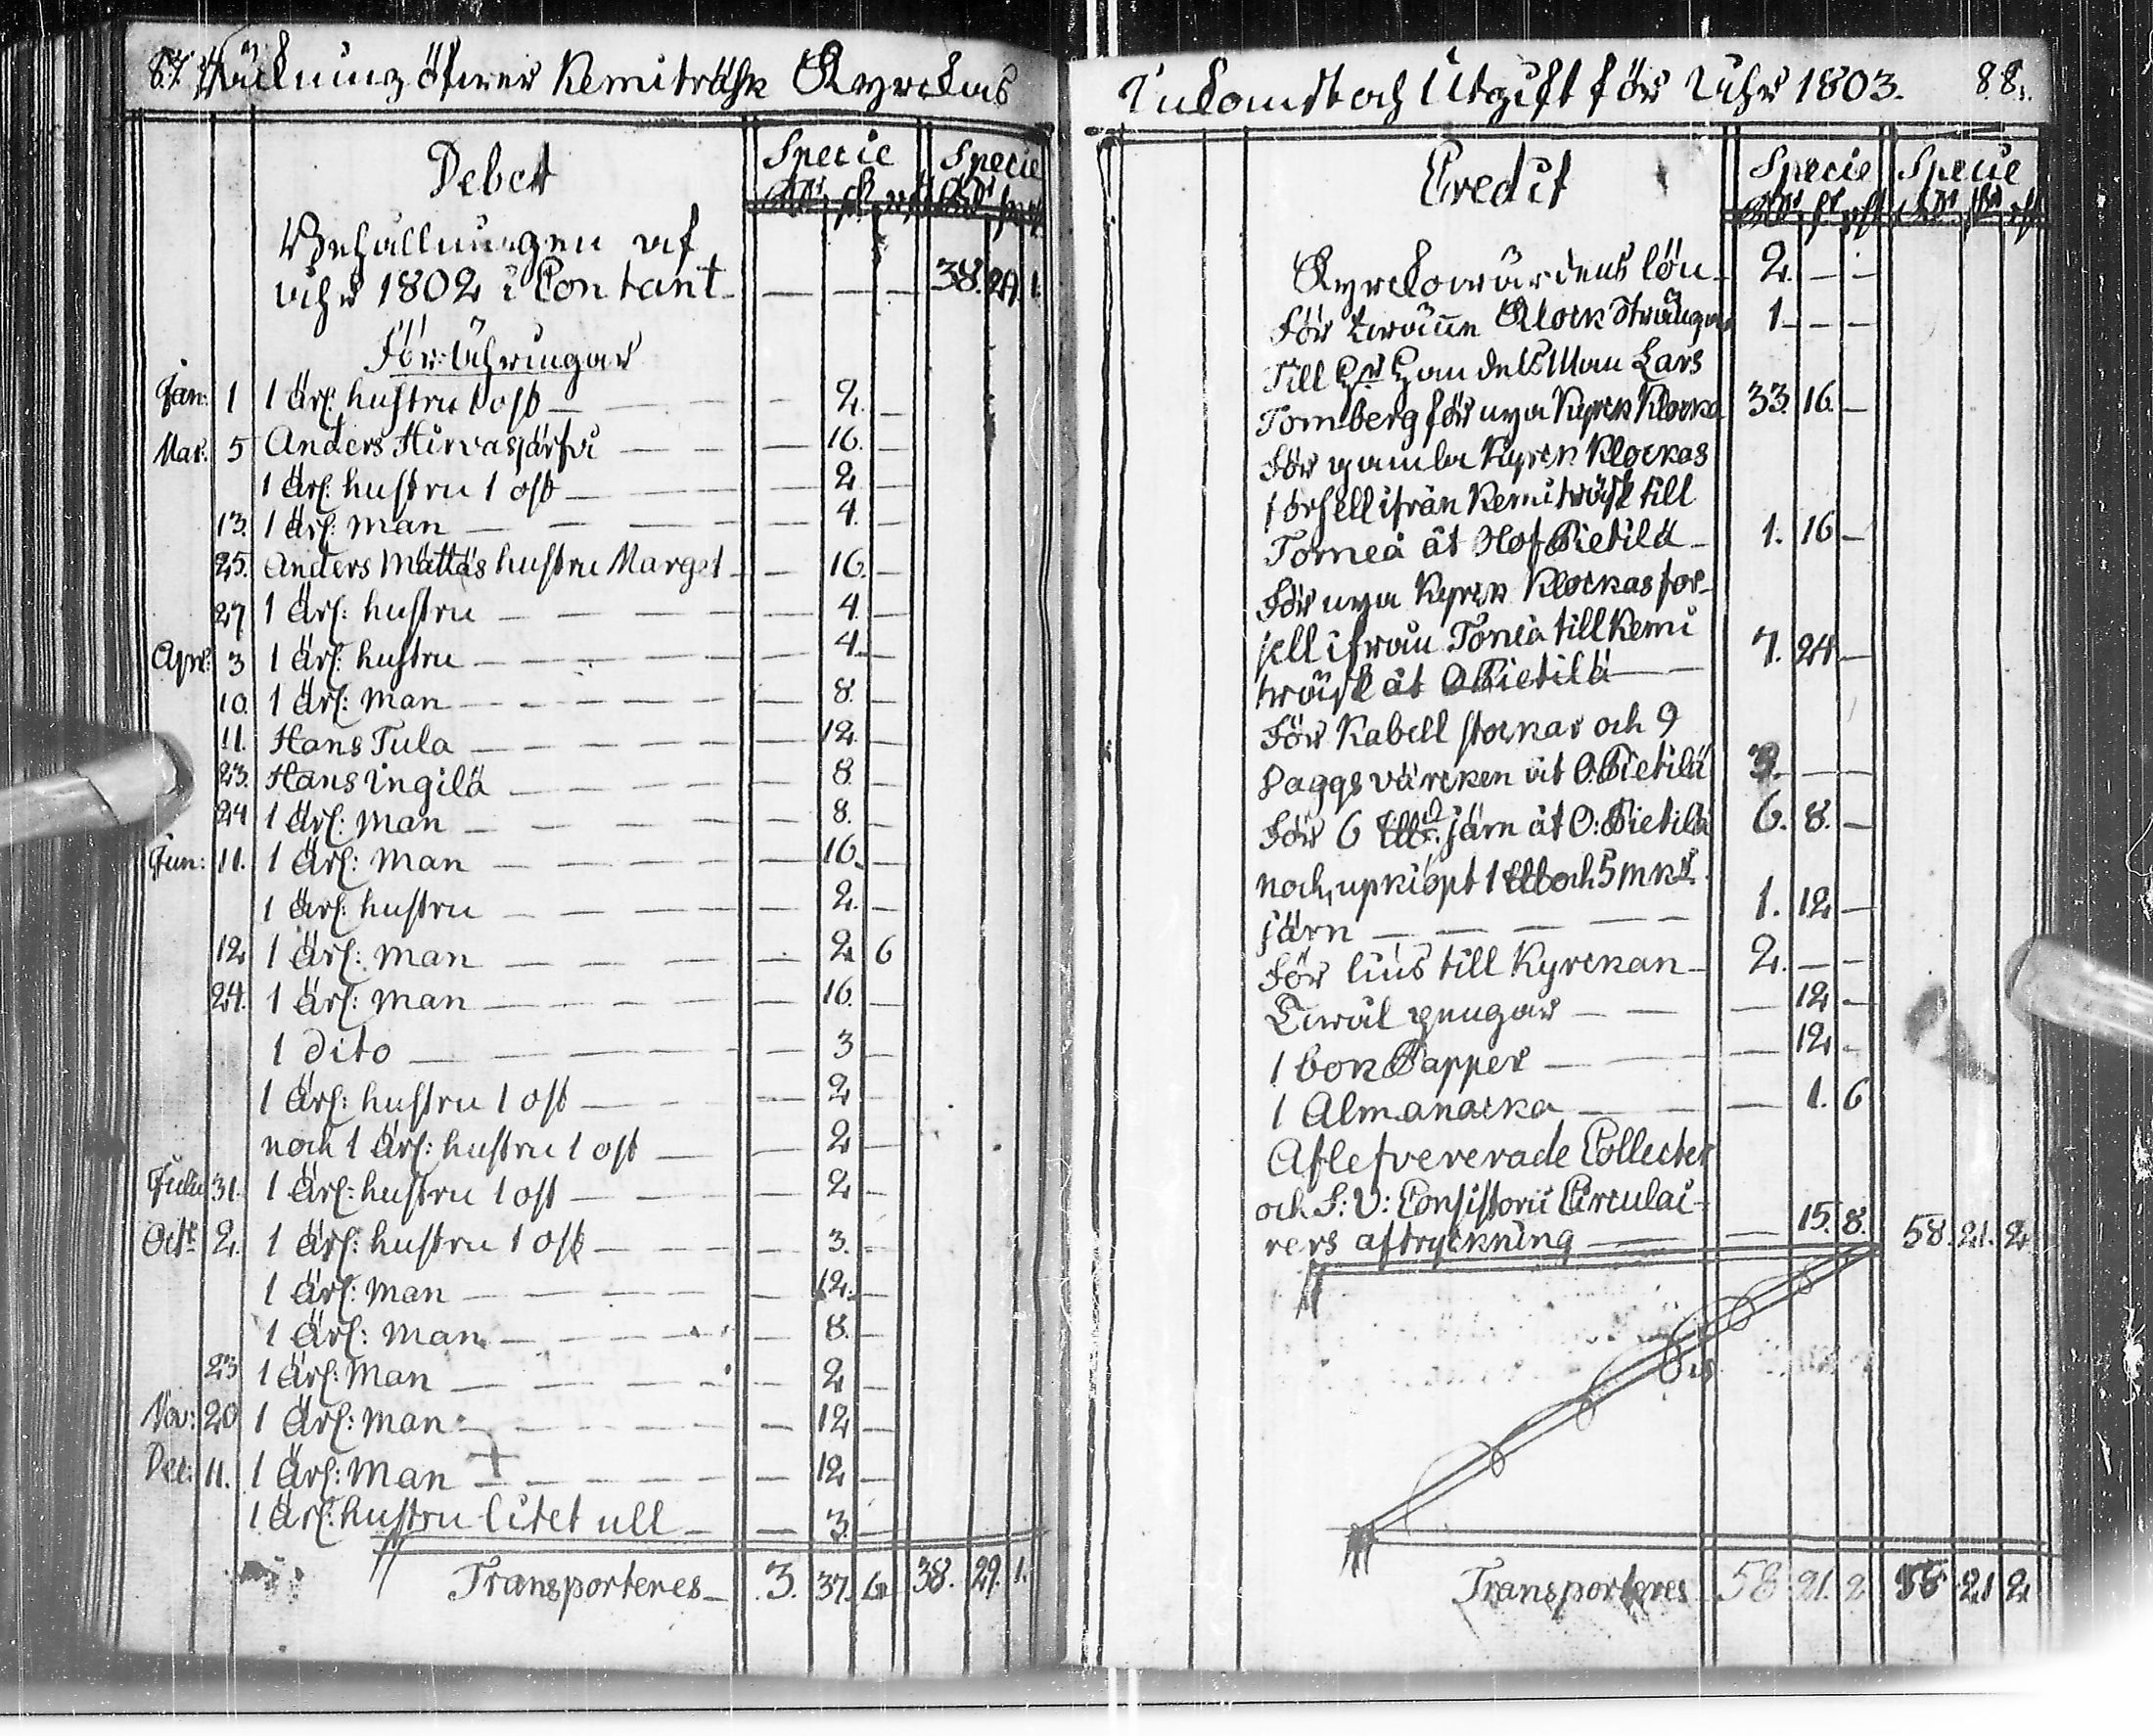 87. Räckning öfwer Kemiträsk Kyrckas
Debet
Specie Specie
Rdr sk rst Rdr sk rst
Behållningen af
åhr 1802 i Contant — — — 38. 29. 1.
För:ähringar
Jan: 1 1 ärl: hustru 1 ost — — 2. —
Mar: 5 Anders Hirvasjärfvi — — 16. —
1 ärl: hustru 1 ost — — 2 —
13. 1 ärl: man — — 4. —
25. Anders Mattas hustru Marget — — 16. —
27 1 ärl: hustru — — 4. —
Apr: 3 1 ärl: hustru — — 4. —
10. 1 ärl: man — — 8. —
11. Hans Tula — — 12. —
23. Hans Ingilä — — 8. —
24 1 ärl: man — — 8. —
Jun: 11. 1 ärl: man — — 16. —
1 ärl: hustru — — 2. —
12 1 ärl: man — — 2 6
24. 1 ärl: man — — 16. —
1 dito — — 3 —
1 ärl: hustru 1 ost — — 2 —
noch 1 ärl: hustru 1 ost — — 2 —
Julii 31. 1 ärl: hustru 1 ost — — 2 —
Octr 2. 1 ärl: hustru 1 ost — — 3. —
1 ärl: man — — 12. —
1 ärl: man — — 8. —
23 1 ärl: man — — 2 —
Nov: 20 1 ärl: man — — 12 —
Dec: 11. 1 ärl: man — — 12 —
1 ärl: hustru litet ull — — 3. —
Transporteres — 3. 37. 6 38. 29. 1.
Inkomst och Utgift för Åhr 1803. 88.
Credit
Specie Specie
Rdr sk rst Rdr sk rst
Kyrckowärdens lön — 2. — —
För twänne Klock Stränger 1 — — —
Till Hr HandelsMan Lars
Tornberg för nya Kyrck Klocka 33. 16. —
För gamla Kyrck Klockas
forsell ifrån Kemiträsk till
Torneå åt Olof Pietilä — 1. 16 —
För nya Kyrck Klockas for-
sell ifrån Torneå till Kemi
träsk åt O Pietilä — 7. 24 —
För Kabell stockar och 9
Daggsvärcken åt O. Pietilä 3. — —
För 6 järn åt O: Pietilä 6. 8. —
noch, upkiöpt 1 och 5 mkr
järn — — — — 1. 12 —
För lius till Kyrckan — 2. — —
Qwäl pengar — — — 12 —
1 bok Papper — — 12 —
1 Almanacka — — — 1. 6
Aflefvererade Collecter
och S: V: Consistorii Circulai-
rers aftryckning — — 15. 8. 58. 21. 2
Transporteres 58 21. 2 58 21 2